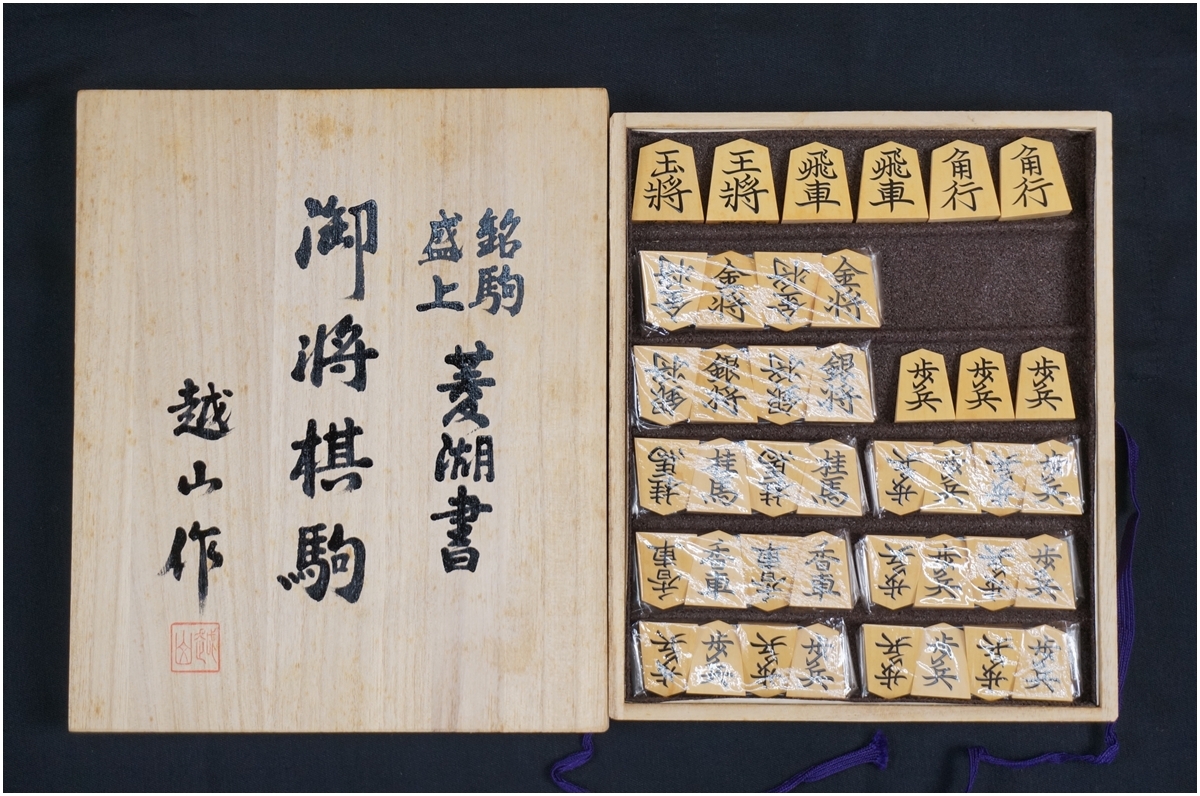 銘駒
盛上
菱湖書
御将棋駒
越山作
越山
玉將
王將
飛車
飛車
角行
角行
金将
金将
金将
金将
銀将
銀将
銀将
銀将
歩兵
歩兵
歩兵
桂馬
桂馬
桂馬
桂馬
歩兵
歩兵
歩兵
歩兵
香車
香車
香車
香車
歩兵
歩兵
歩兵
歩兵
歩兵
歩兵
歩兵
歩兵
歩兵
歩兵
歩兵
歩兵